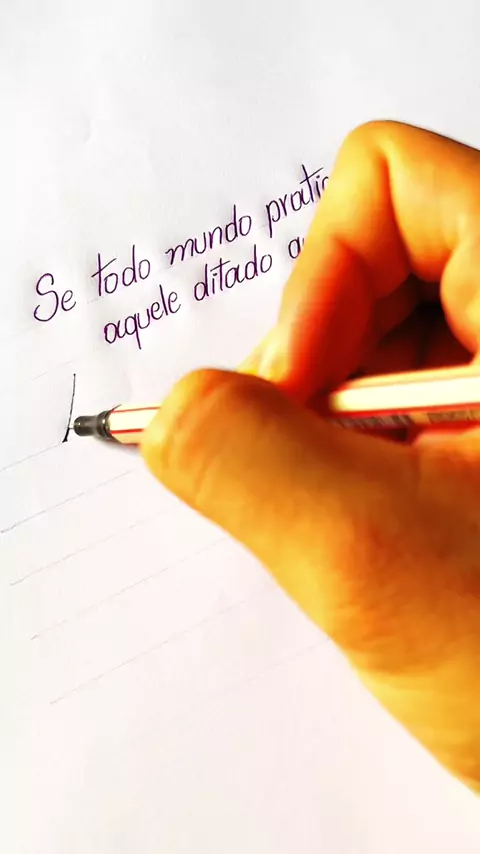 Se todo mundo pratic
aquele ditado a